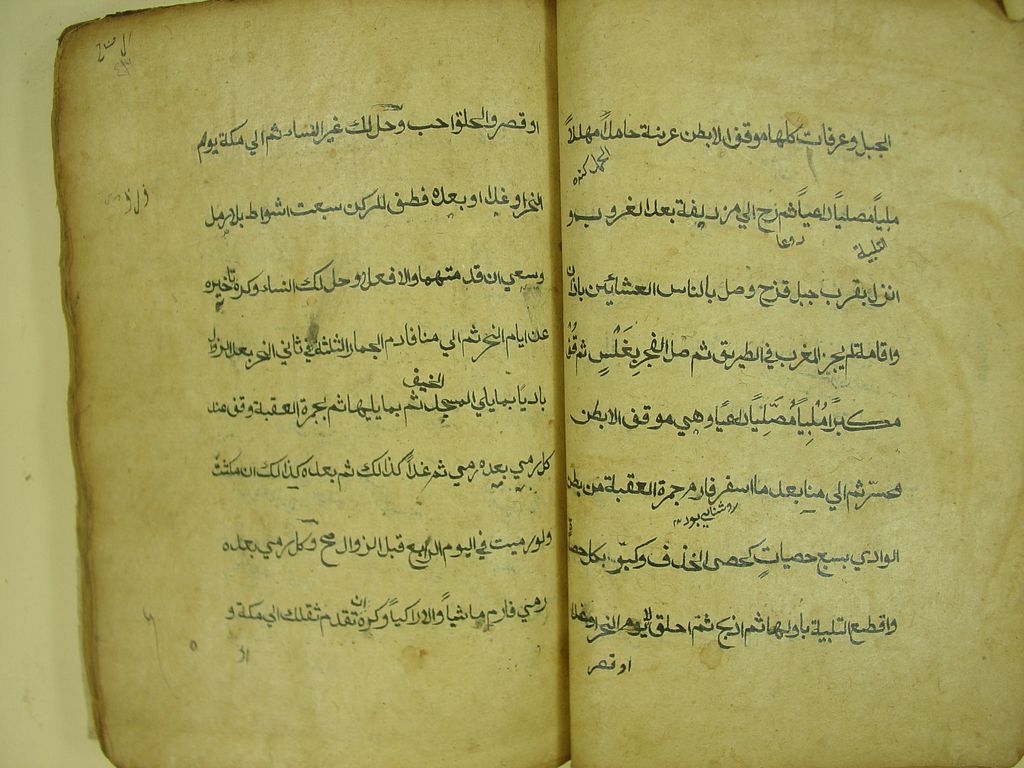 الجبل وعرفات كلها موقف الا بطن عرنة حامدا مهللا
ملبيا مصليا داعيا ثم رح الي مزدلفة بعد الغروب و
انزل بقرب جبل قزح وصل بالناس العشائين باذان
واقامة ولم يجز المغرب في الطريق ثم صل الفجر بِغَلَسٍ ثم قف
مكبرًا مُلَبِيًا مُصَلِّيًا داعيًا وهي موقف الا بطن
محسّر ثم الي منا بعد ما اسفر فارم جمرة العقبة من بطن
روشنايى بود
الوادي بسبع حصياتٍ كحصى الخذف وكبّر بكل حصاة
واقطع التلبية باولها ثم اذبح ثم احلق
او قصر
او قصر والحلق احب وحل لك غير النساء ثم الي مكة يوم
النحر او غدا او بعده فطف للركن سبعت اشواط بلا رمل
وسعي ان قدمتهما والا فعلا وحل لك النساء وكره تاخيره
عن ايام النحر ثم الي منا فارم الجمار الثلثة في ثاني النحر بعد الزوال
باديًا بما يلي المسجد ثم بما يليها ثم بجمرة العقبة وقف عند
الخيف
كل رمي بعده رمي ثم غداً كذالك ثم بعده كذالك ان مكثت
ولو رميت في اليوم الرابع قبل الزوال صح وكل رمي بعده
رمي فارم ماشياً والا راكباً وكره ان تقدم ثقلك الي مكة و